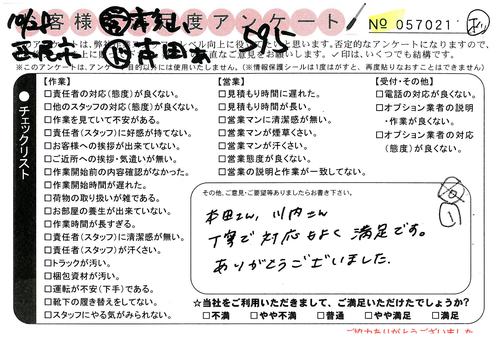 お客様満足度アンケート
№ 057021
595
本アンケートは、弊社
レベル向上に役
思います。否定的なアンケートになりますので、
直なご意見をお願いします。✓印は、いくつでも結構です。
※このアンケートは、アンケート目的以外には使用いたしません。(※情報保護シールは1度はがすと、再度貼りなおすことはできません)
●チェックリスト
【作業】
□責任者の対応(態度)が良くない。
□他のスタッフの対応(態度)が良くない。
□作業を見ていて不安がある。
□責任者(スタッフ)に好感が持てない。
□お客様への挨拶が出来ていない。
□ご近所への挨拶・気遣いが無い。
□作業開始前の内容確認がなかった。
□作業開始時間が遅れた。
□荷物の取り扱いが雑である。
□お部屋の養生が出来ていない。
□作業時間が長すぎる。
□責任者(スタッフ)に清潔感が無い。
□責任者(スタッフ)が汗くさい。
□トラックが汚い。
□梱包資材が汚い。
□運転が不安(下手)である。
□靴下の履き替えをしてない。
□スタッフにやる気がみられない。
【営業】
□見積もり時間に遅れた。
□見積もり時間が長い。
□営業マンに清潔感が無い。
□営業マンが煙草くさい。
□営業マンが汗くさい。
□営業態度が良くない。
□営業の説明と作業が一致してない。
【受付・その他】
□電話の対応が良くない。
□オプション業者の説明・作業が良くない。
□オプション業者の対応(態度)が良くない。
その他、ご意見・ご要望等ありましたらお書き下さい。
本田さん, 川内さん
丁寧で 対応もよく 満足です。
ありがとうございました.
☆当社をご利用いただきまして、ご満足いただけたでしょうか?
□不満 □やや不満 □普通 □やや満足 □満足
ご協力ありがとうございました